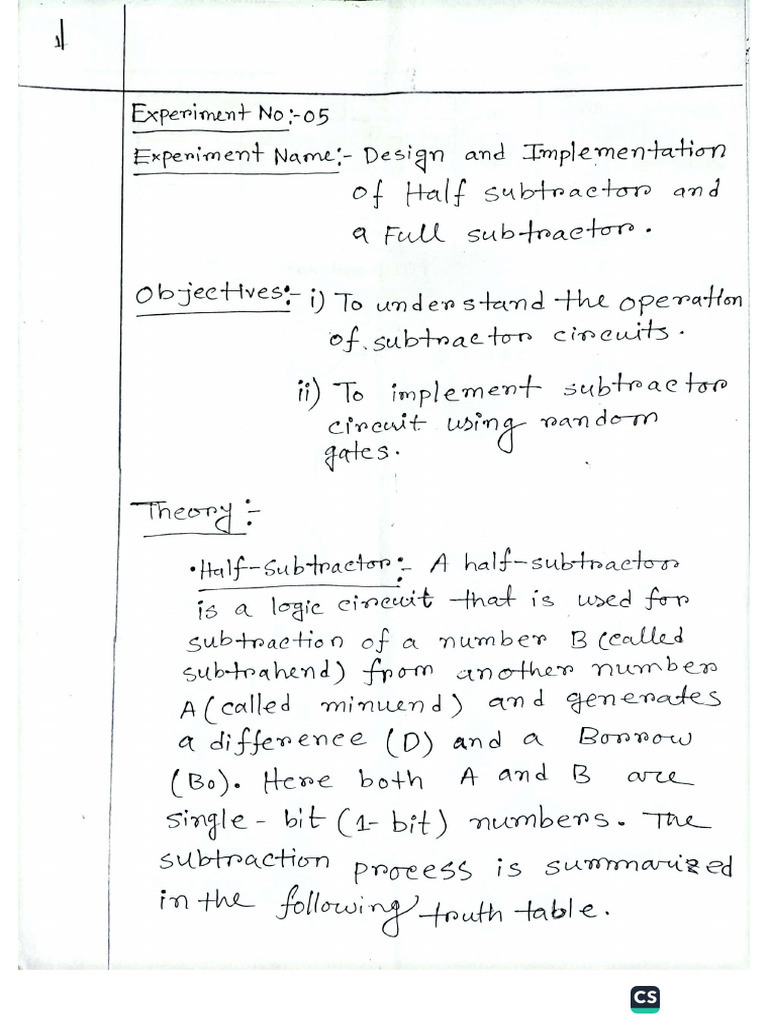 1
Experiment No:-05
Experiment Name:- Design and Implementation
of Half subtractor and
a Full subtractor.
Objectives:- i) To understand the operation
of subtractor circuits.
ii) To implement subtractor
circuit using random
gates.
Theory:-
• Half-Subtractor:- A half-subtractor
is a logic circuit that is used for
subtraction of a number B (called
subtrahend) from another number
A (called minuend) and generates
a difference (D) and a Borrow
(Bo). Here both A and B are
single-bit (1-bit) numbers. The
subtraction process is summarized
in the following truth table.
CS